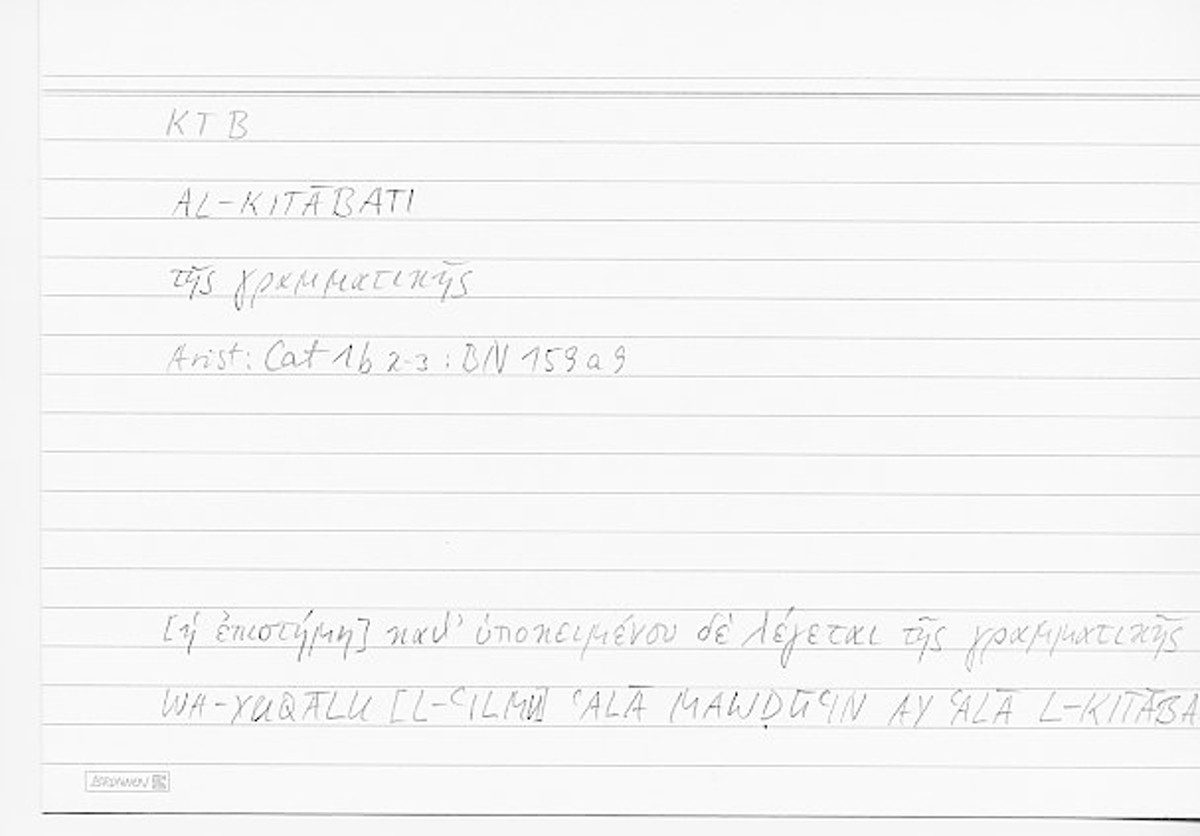 KTB
AL-KITĀBATI
τῆς γραμματικῆς
Arist: Cat 1b 2-3 : BN 159a9
[ἡ ἐπιστήμη] καθ' ὑποκειμένου δὲ λέγεται τῆς γραμματικῆς
WA-YUQĀLU [L-ʿILMU] ʿALĀ MAWḌŪʿIN AY ʿALĀ L-KITĀBA
BRUNNEN